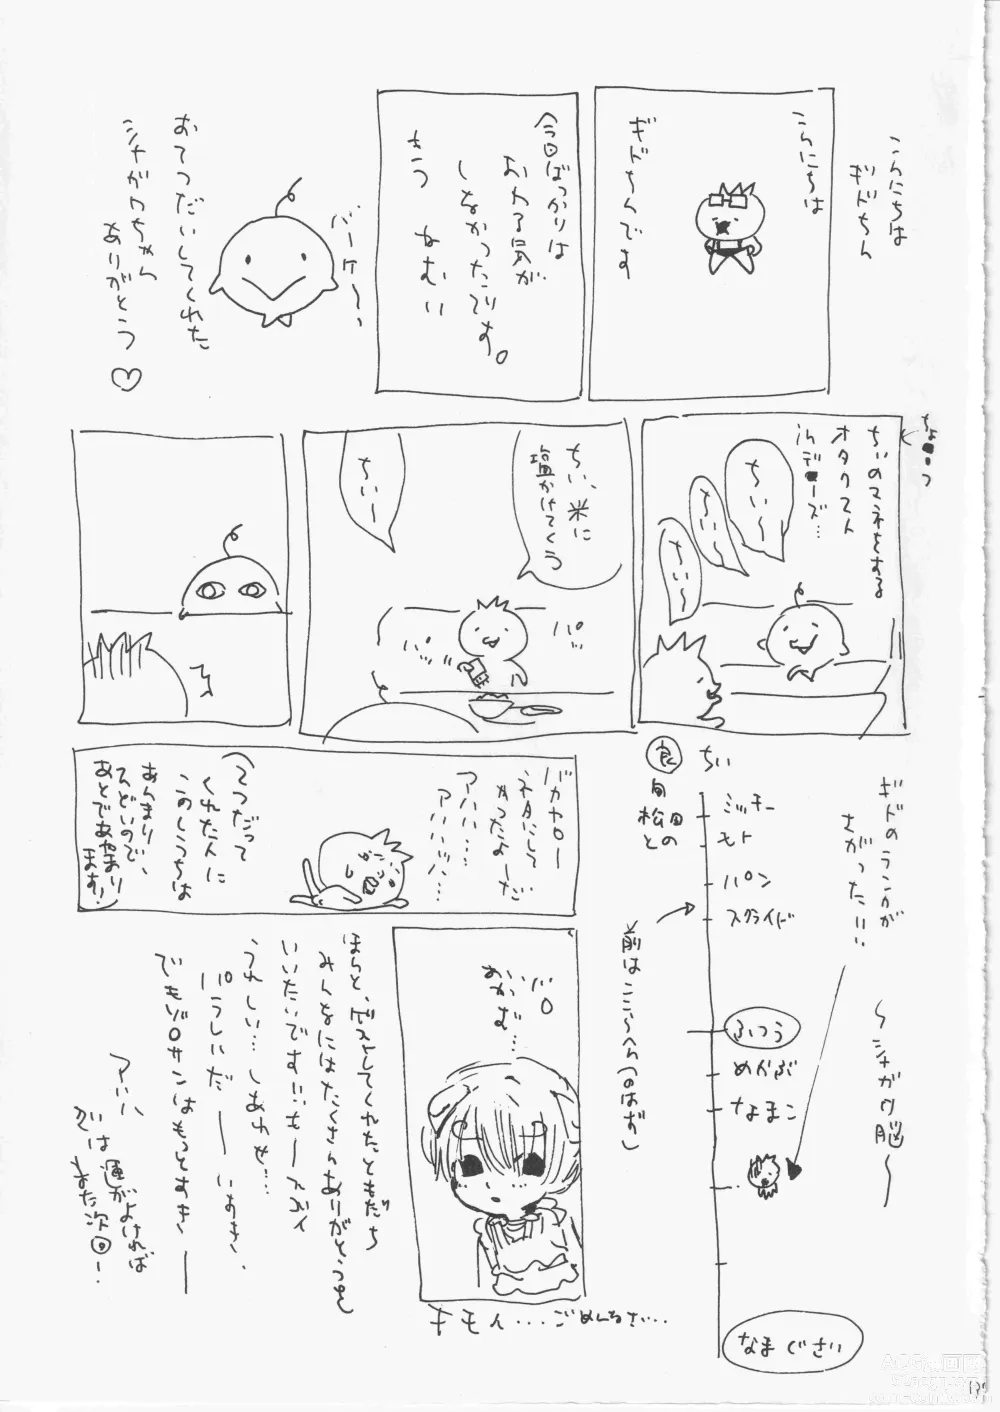 こんにちは
ギドちん
こんにちは
ギドちんです
今日ばっかりは
おわる気が
しなかったです。
もう ねむい
バーケ〜、
おてつだいしてくれた
シャガワちゃん
ありがとう♡
ちょーっ
ちいのマネをする
オタクマスト
ちい〜
ちい〜
ちい〜
ちい、米に
塩かけてくう
ちい〜
パッ
パッ
バカヤロー
ネタにして
やったよーだ
アハハ…
アハハハッハ…
(てつだって
くれた人に
このしうちは
あんまり
ひどいので、
あとであやまり
ます!)
ギドのランクが
さがった!!!
〜シャガワ脳〜
ちい
ミッキー
モト
パン
スクライド
ふつう
めかぶ
なまこ
なまぐさい
良
旬
松田
との
(前はここらへん(のはず)
パロ
おかず…
キモイ...ごめんなさい...
ほらと、ゲストしてくれたともだち
みんなにはたくさんありがとうを
いいたいです!!
うれしい… しあわせ…
でもゾロサンはもっとすき ー
アハハ
では運がよければ
また次回ー!